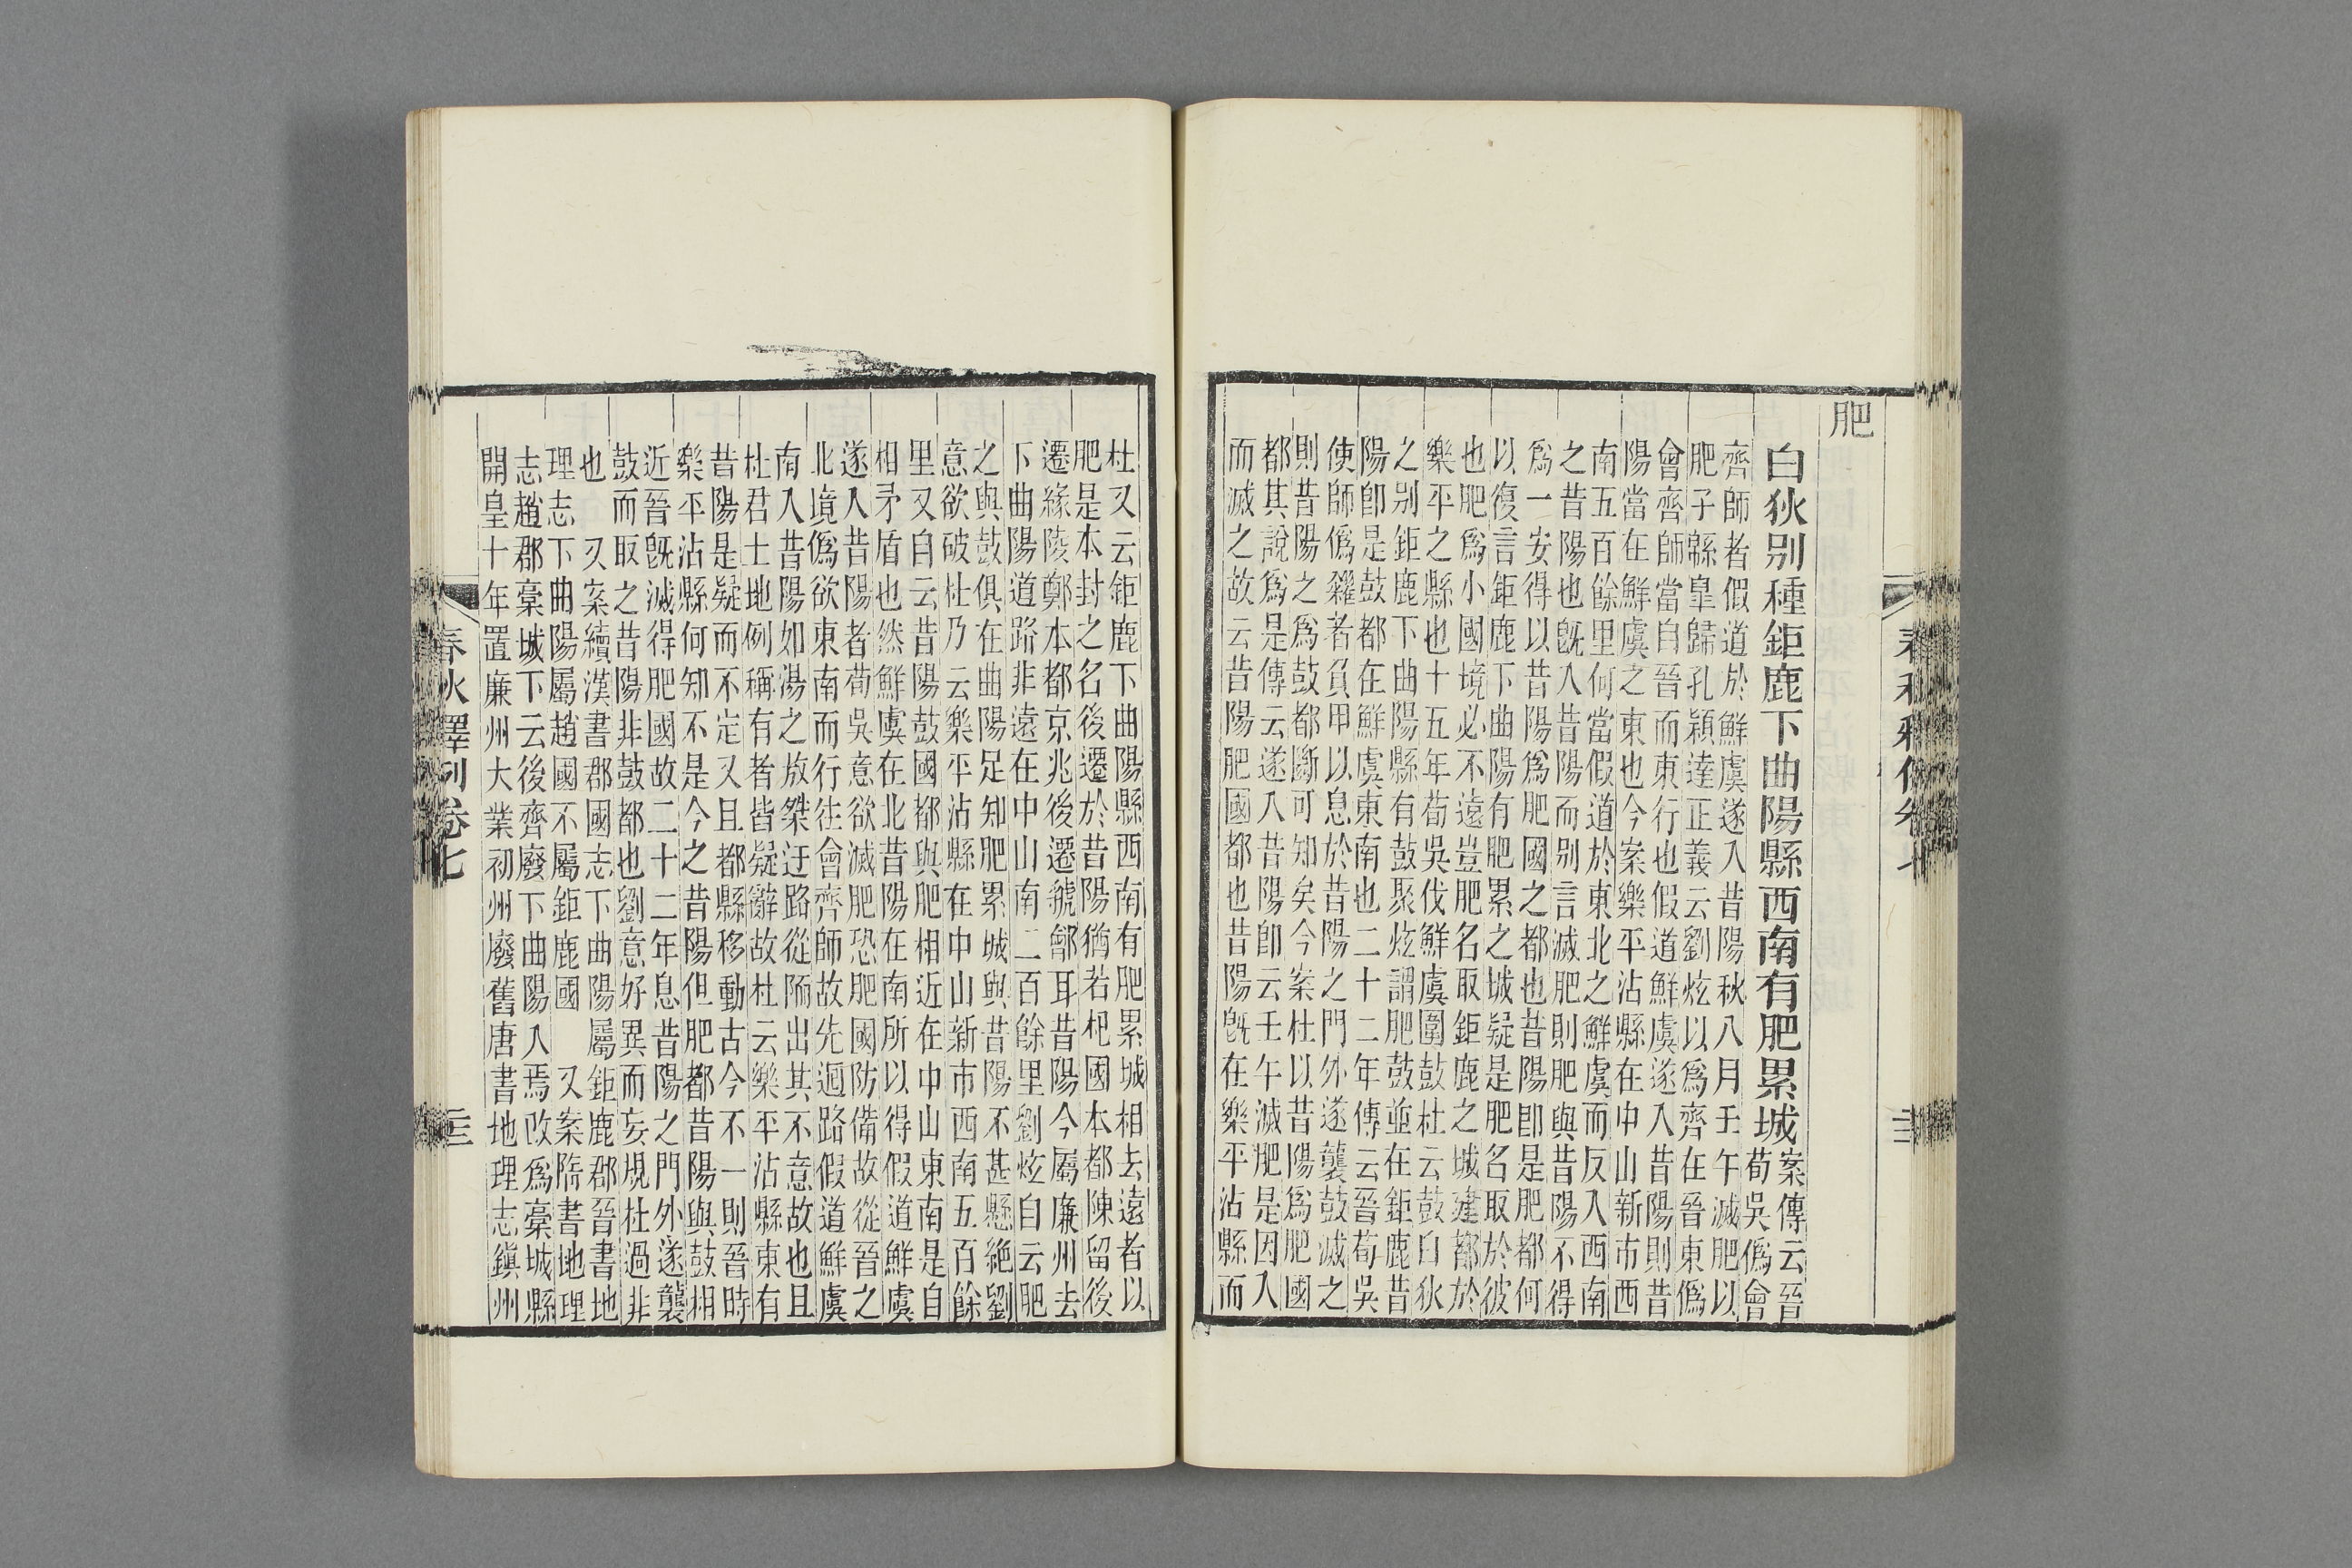 肥
白狄别種鉅鹿下曲陽縣西南有肥累城
案傳云晉
荀吳僞會
齊師者假道於鮮虞遂入昔陽秋八月壬午滅肥以
肥子緜臯歸孔穎達正義云劉炫以爲齊在晉東僞
會齊師當自晉而東行也假道鮮虞遂入昔陽則昔
陽當在鮮虞之東也今案樂平沾縣在中山新市西
南五百餘里何當假道於東北之鮮虞而反入西南
之昔陽也旣入昔陽而别言滅肥則肥與昔陽不得
爲一安得以昔陽爲肥國之都也昔陽卽是肥都何
以復言鉅鹿下曲陽有肥累之城疑是肥名取於彼
也肥爲小國境必不遠豈肥名取鉅鹿之城建都於
樂平之縣也十五年荀吳伐鮮虞圍鼓杜云鼓白狄
之别鉅鹿下曲陽縣有鼓聚炫謂肥鼓並在鉅鹿昔
陽卽是鼓都在鮮虞東南也二十二年傳云晉荀吳
使師僞糴者負甲以息於昔陽之門外遂襲鼓滅之
則昔陽之爲鼓都斷可知矣今案杜以昔陽爲肥國
都其說爲是傳云遂入昔陽卽云壬午滅肥是因入
而滅之故云昔陽肥國都也昔陽旣在樂平沾縣而
杜又云鉅鹿下曲陽縣西南有肥累城相去遠者以
肥是本封之名後遷於昔陽猶若杞國本都陳留後
遷緣陵鄭本都京兆後遷虢鄶耳昔陽今屬廉州去
下曲陽道路非遠在中山南二百餘里劉炫自云肥
之與鼓俱在曲陽足知肥累城與昔陽不甚懸絶劉
意欲破杜乃云樂平沾縣在中山新市西南五百餘
里又自云昔陽鼓國都與肥相近在中山東南是自
相矛盾也然鮮虞在北昔陽在南所以得假道鮮虞
遂入昔陽者荀吳意欲滅肥恐肥國防備故從晉之
北境僞欲東南而行往會齊師故先迴路假道鮮虞
南入昔陽如湯之放桀迂路從陑出其不意故也且
杜君土地例稱有者皆疑辭故杜云樂平沾縣東有
昔陽是疑而不定又且都縣移動古今不一則晉時
樂平沾縣何知不是今之昔陽但肥都昔陽與鼓相
近晉旣滅得肥國故二十二年息昔陽之門外遂襲
鼓而取之昔陽非鼓都也劉意好異而妄規杜過非
也 又案續漢書郡國志下曲陽屬鉅鹿郡晉書地
理志下曲陽屬趙國不屬鉅鹿國 又案隋書地理
志趙郡藁城下云後齊廢下曲陽入焉改爲藁城縣
開皇十年置廉州大業初州廢舊唐書地理志鎭州
春秋釋例卷七